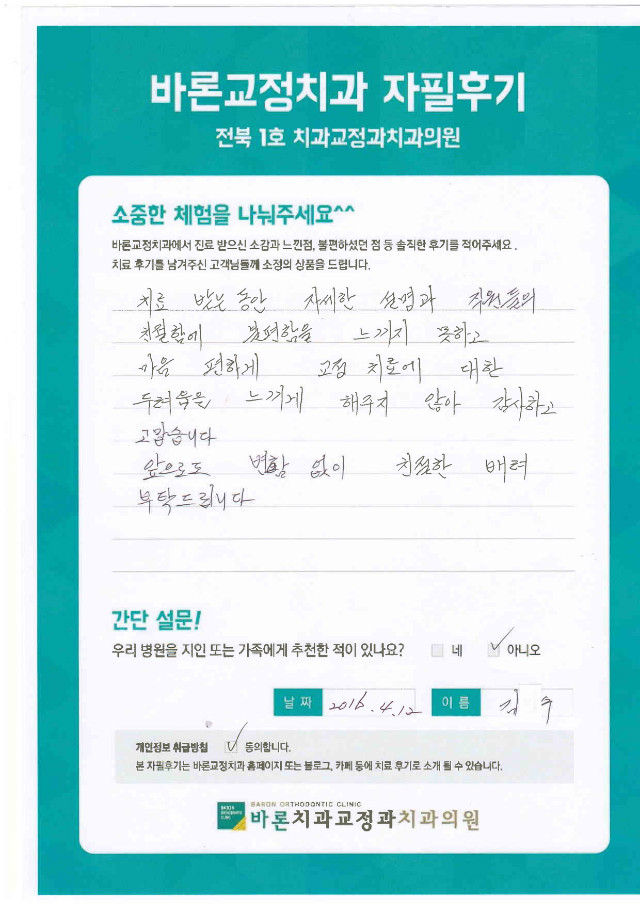 바론교정치과 자필후기
전북 1호 치과교정과치과의원
소중한 체험을 나눠주세요^^
바론교정치과에서 진료 받으신 소감과 느낀점, 불편하셨던 점 등 솔직한 후기를 적어주세요.
치료 후기를 남겨주신 고객님들께 소정의 상품을 드립니다.
치료 받는 동안 자세한 설명과 직원들의
친절함에 불편함을 느끼지 못하고
마음 편하게 교정 치료에 대한
두려움을 느끼게 해주지 않아 감사하고
고맙습니다
앞으로도 변함 없이 친절한 배려
부탁드립니다
간단 설문!
우리 병원을 지인 또는 가족에게 추천한 적이 있나요? 네 아니오
날 짜 2016.4.12 이 름 김 수
개인정보 취급방침 동의합니다.
본 자필후기는 바론교정치과 홈페이지 또는 블로그, 카페 등에 치료 후기로 소개 될 수 있습니다.
BARON ORTHODONTIC CLINIC
바론치과교정과치과의원